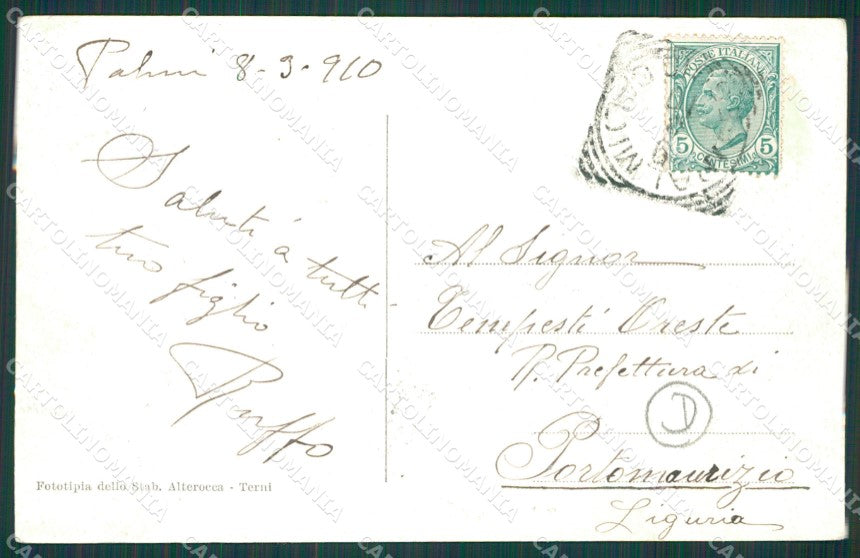 Palmi 8-3-910
Saluti a tutti
tuo figlio
Ruffo
POSTE ITALIANE
5 5
CENTESIMI
PALMI
Al Signor
Tempesti Oreste
R. Prefettura di
D
Portomaurizio
Liguria
Fototipia dello Stab. Alterocca - Terni
CARTOLINOMANIA